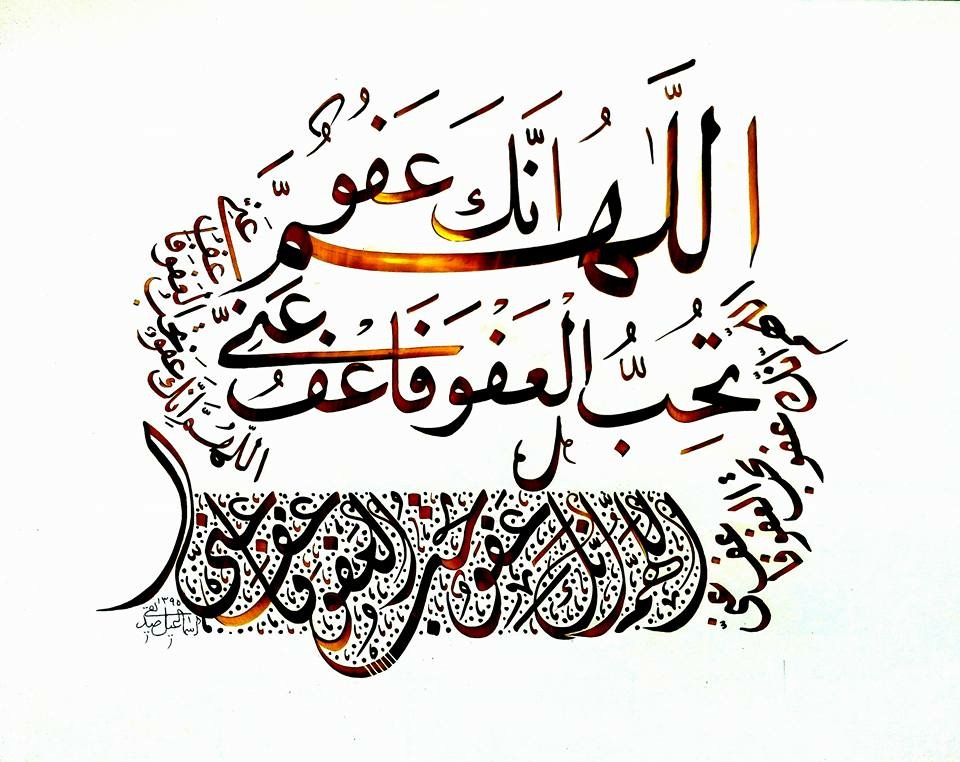 اللّٰهُمَّ اِنَّكَ عَفُوٌّ
تُحِبُّ الْعَفْوَ فَاعْفُ عَنِّي
اللّٰهم انك عفو تحب العفو فاعف عني
اللّٰهم انك عفو تحب العفو فاعف عني
اللّٰهم انك عفو تحب العفو فاعف عني
اسماعیل صدیقی
۱۳۹۵